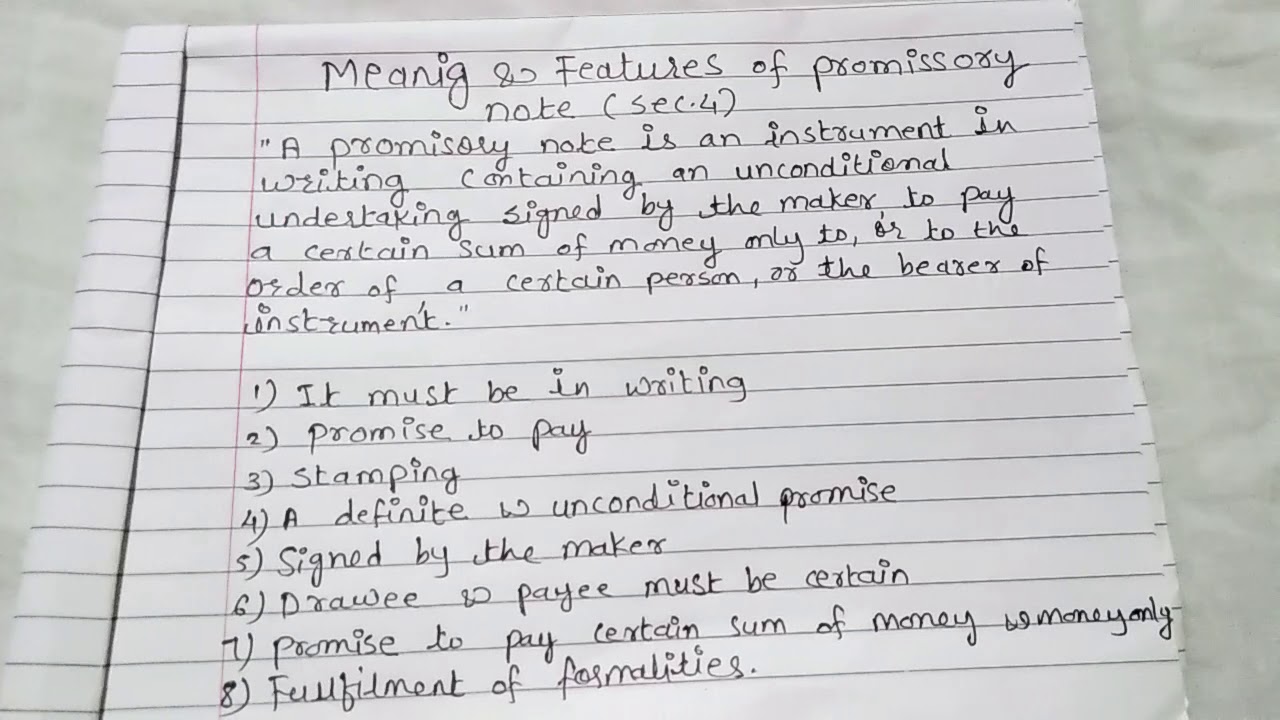 Meanig & Features of promissory
note (sec.4)
"A promisory note is an instrument in
writing containing an unconditional
undertaking signed by the maker to pay
a certain sum of money only to, or to the
order of a certain person, or the bearer of
instrument."
1) It must be in writing
2) promise to pay
3) stamping
4) A definite & unconditional promise
5) Signed by the maker
6) Drawee & payee must be certain
7) promise to pay certain sum of money & money only
8) Fullfilment of formalities.